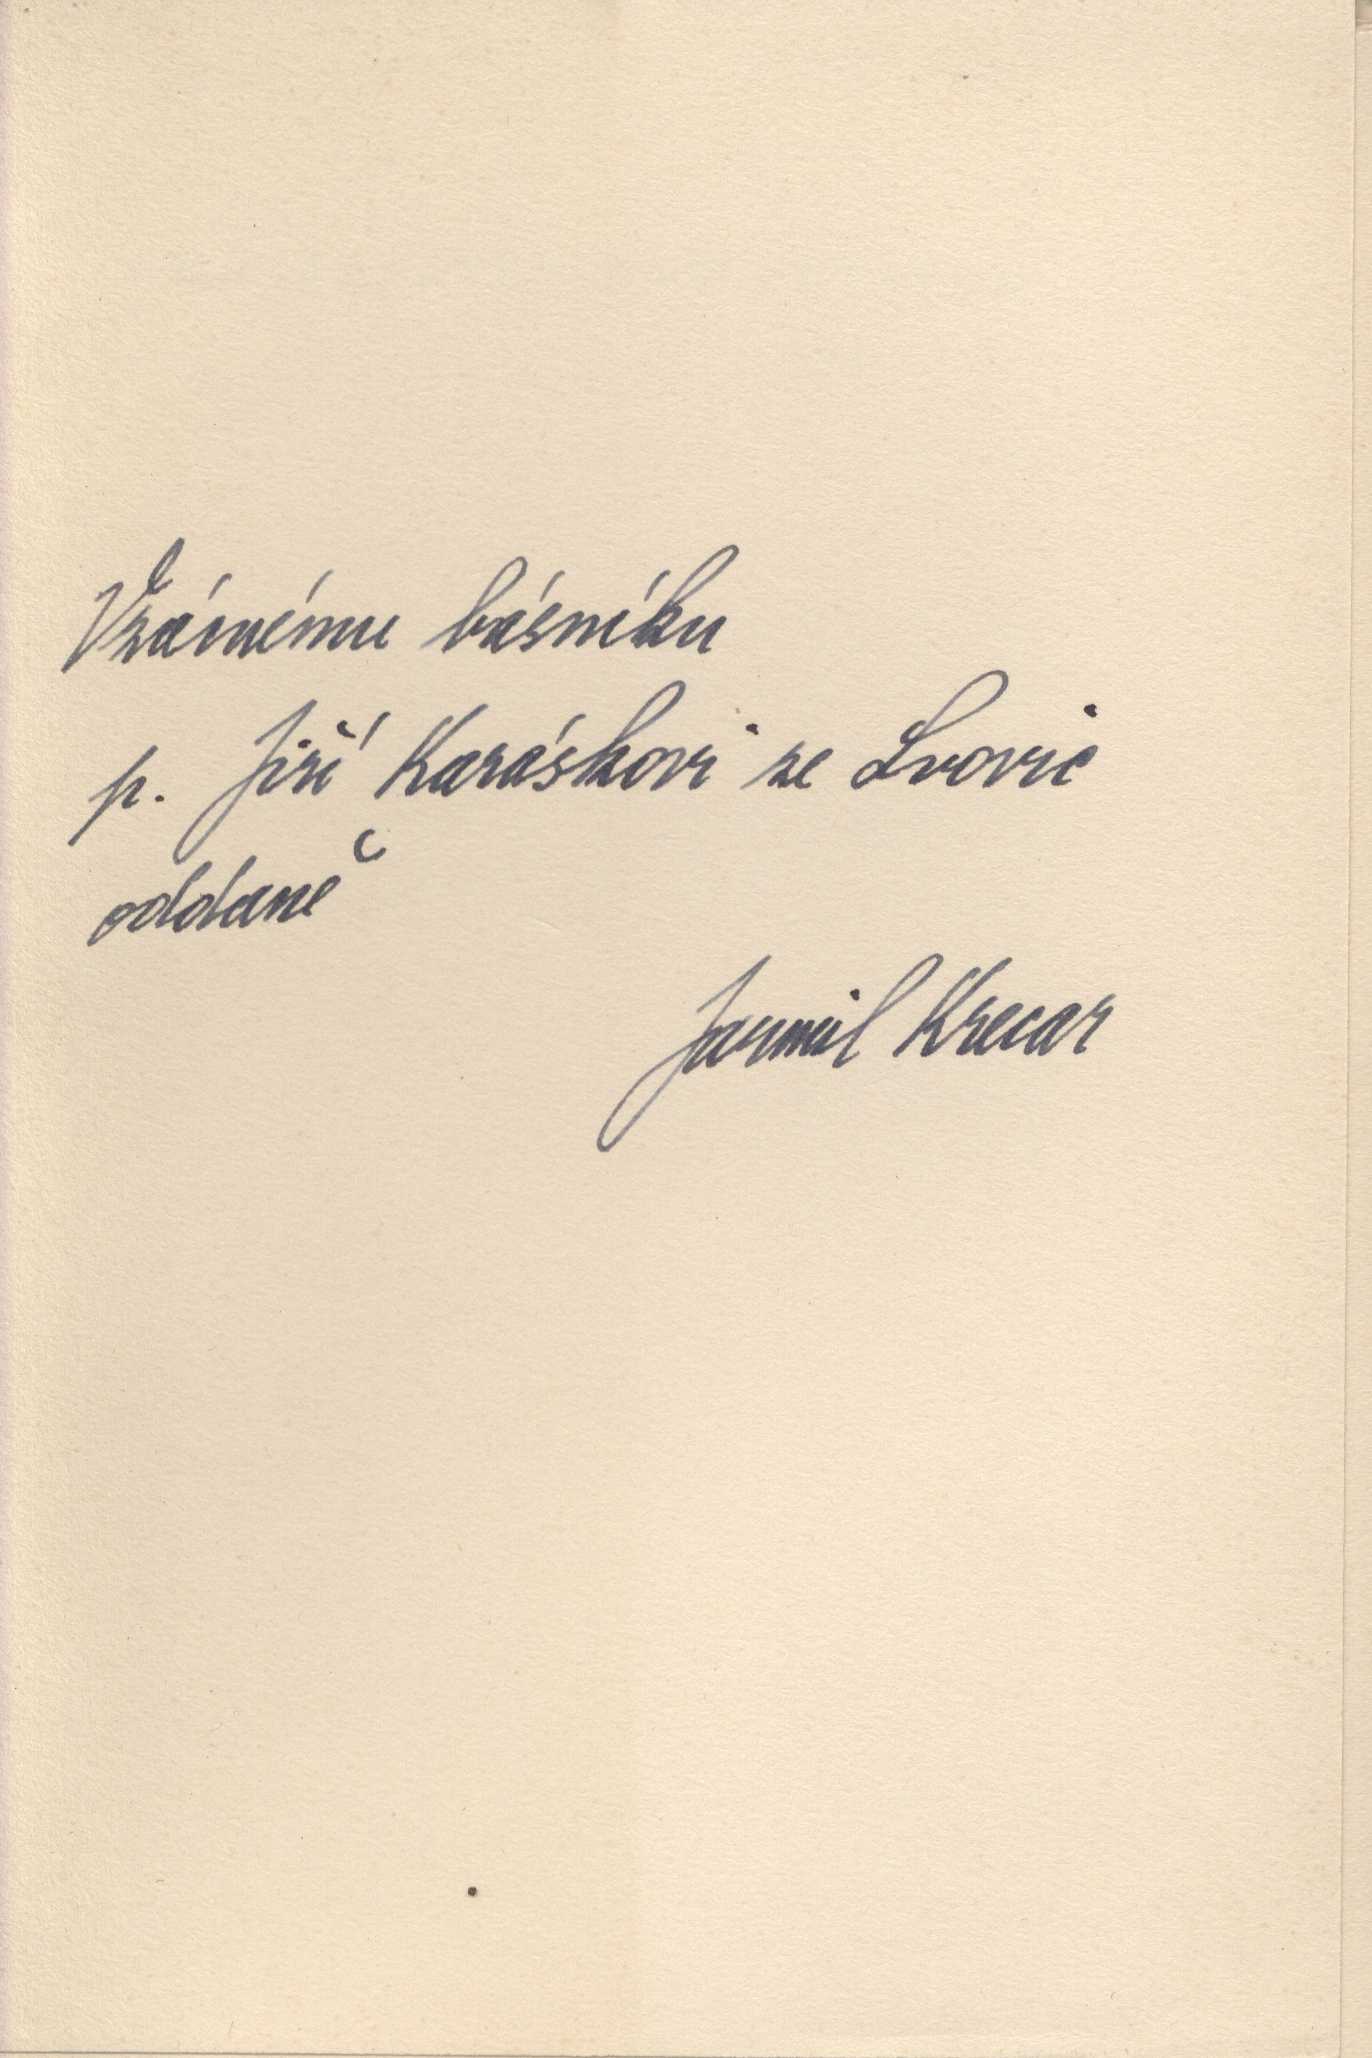 Vzácnému básníku
p. Jiří Karáskovi ze Lvovic
oddaně
Jarmil Krecar